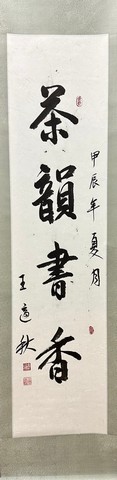 茶韻書香
甲辰年夏月
王適秋